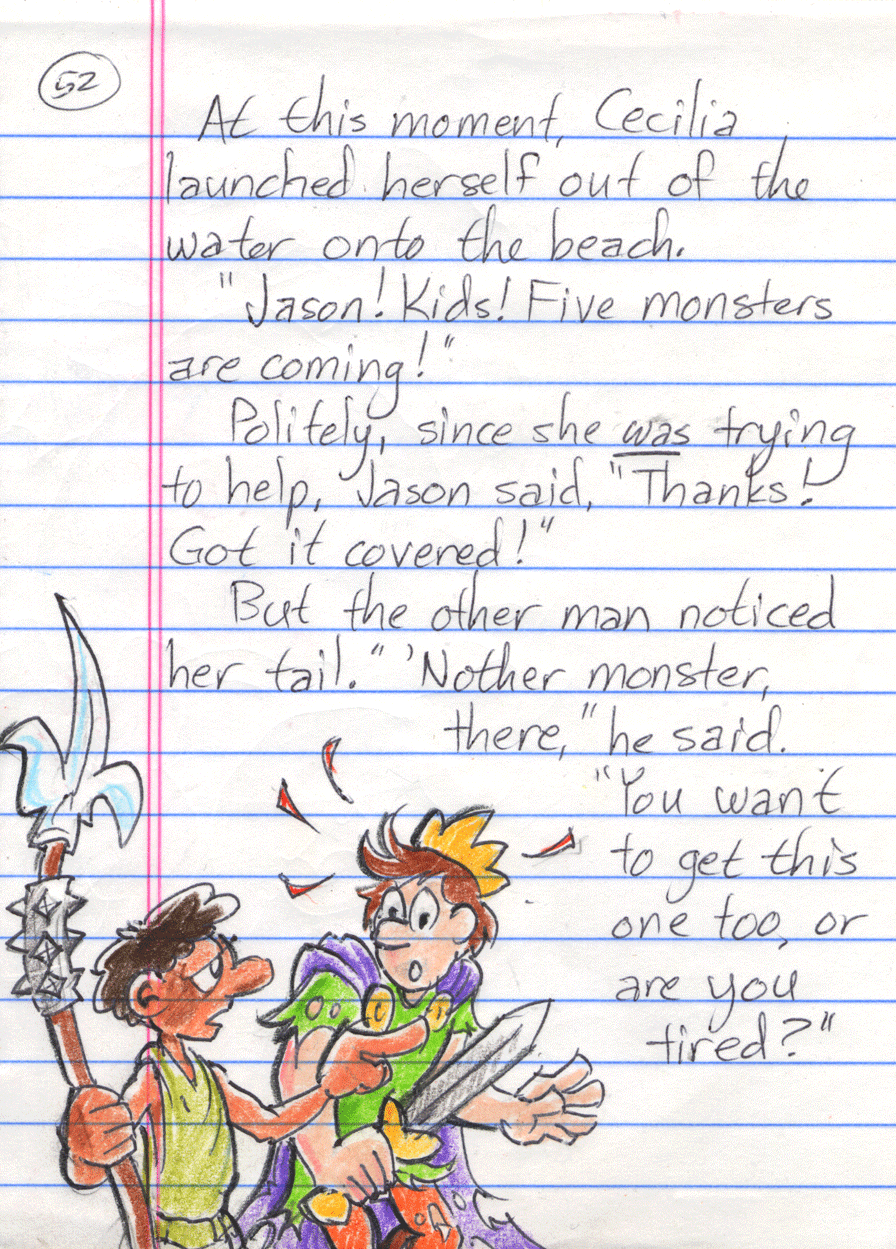 52
At this moment, Cecilia
launched herself out of the
water onto the beach.
"Jason! Kids! Five monsters
are coming!"
Politely, since she was trying
to help, Jason said, "Thanks!
Got it covered!"
But the other man noticed
her tail. "'Nother monster,
there," he said.
"You want
to get this
one too, or
are you
tired?"